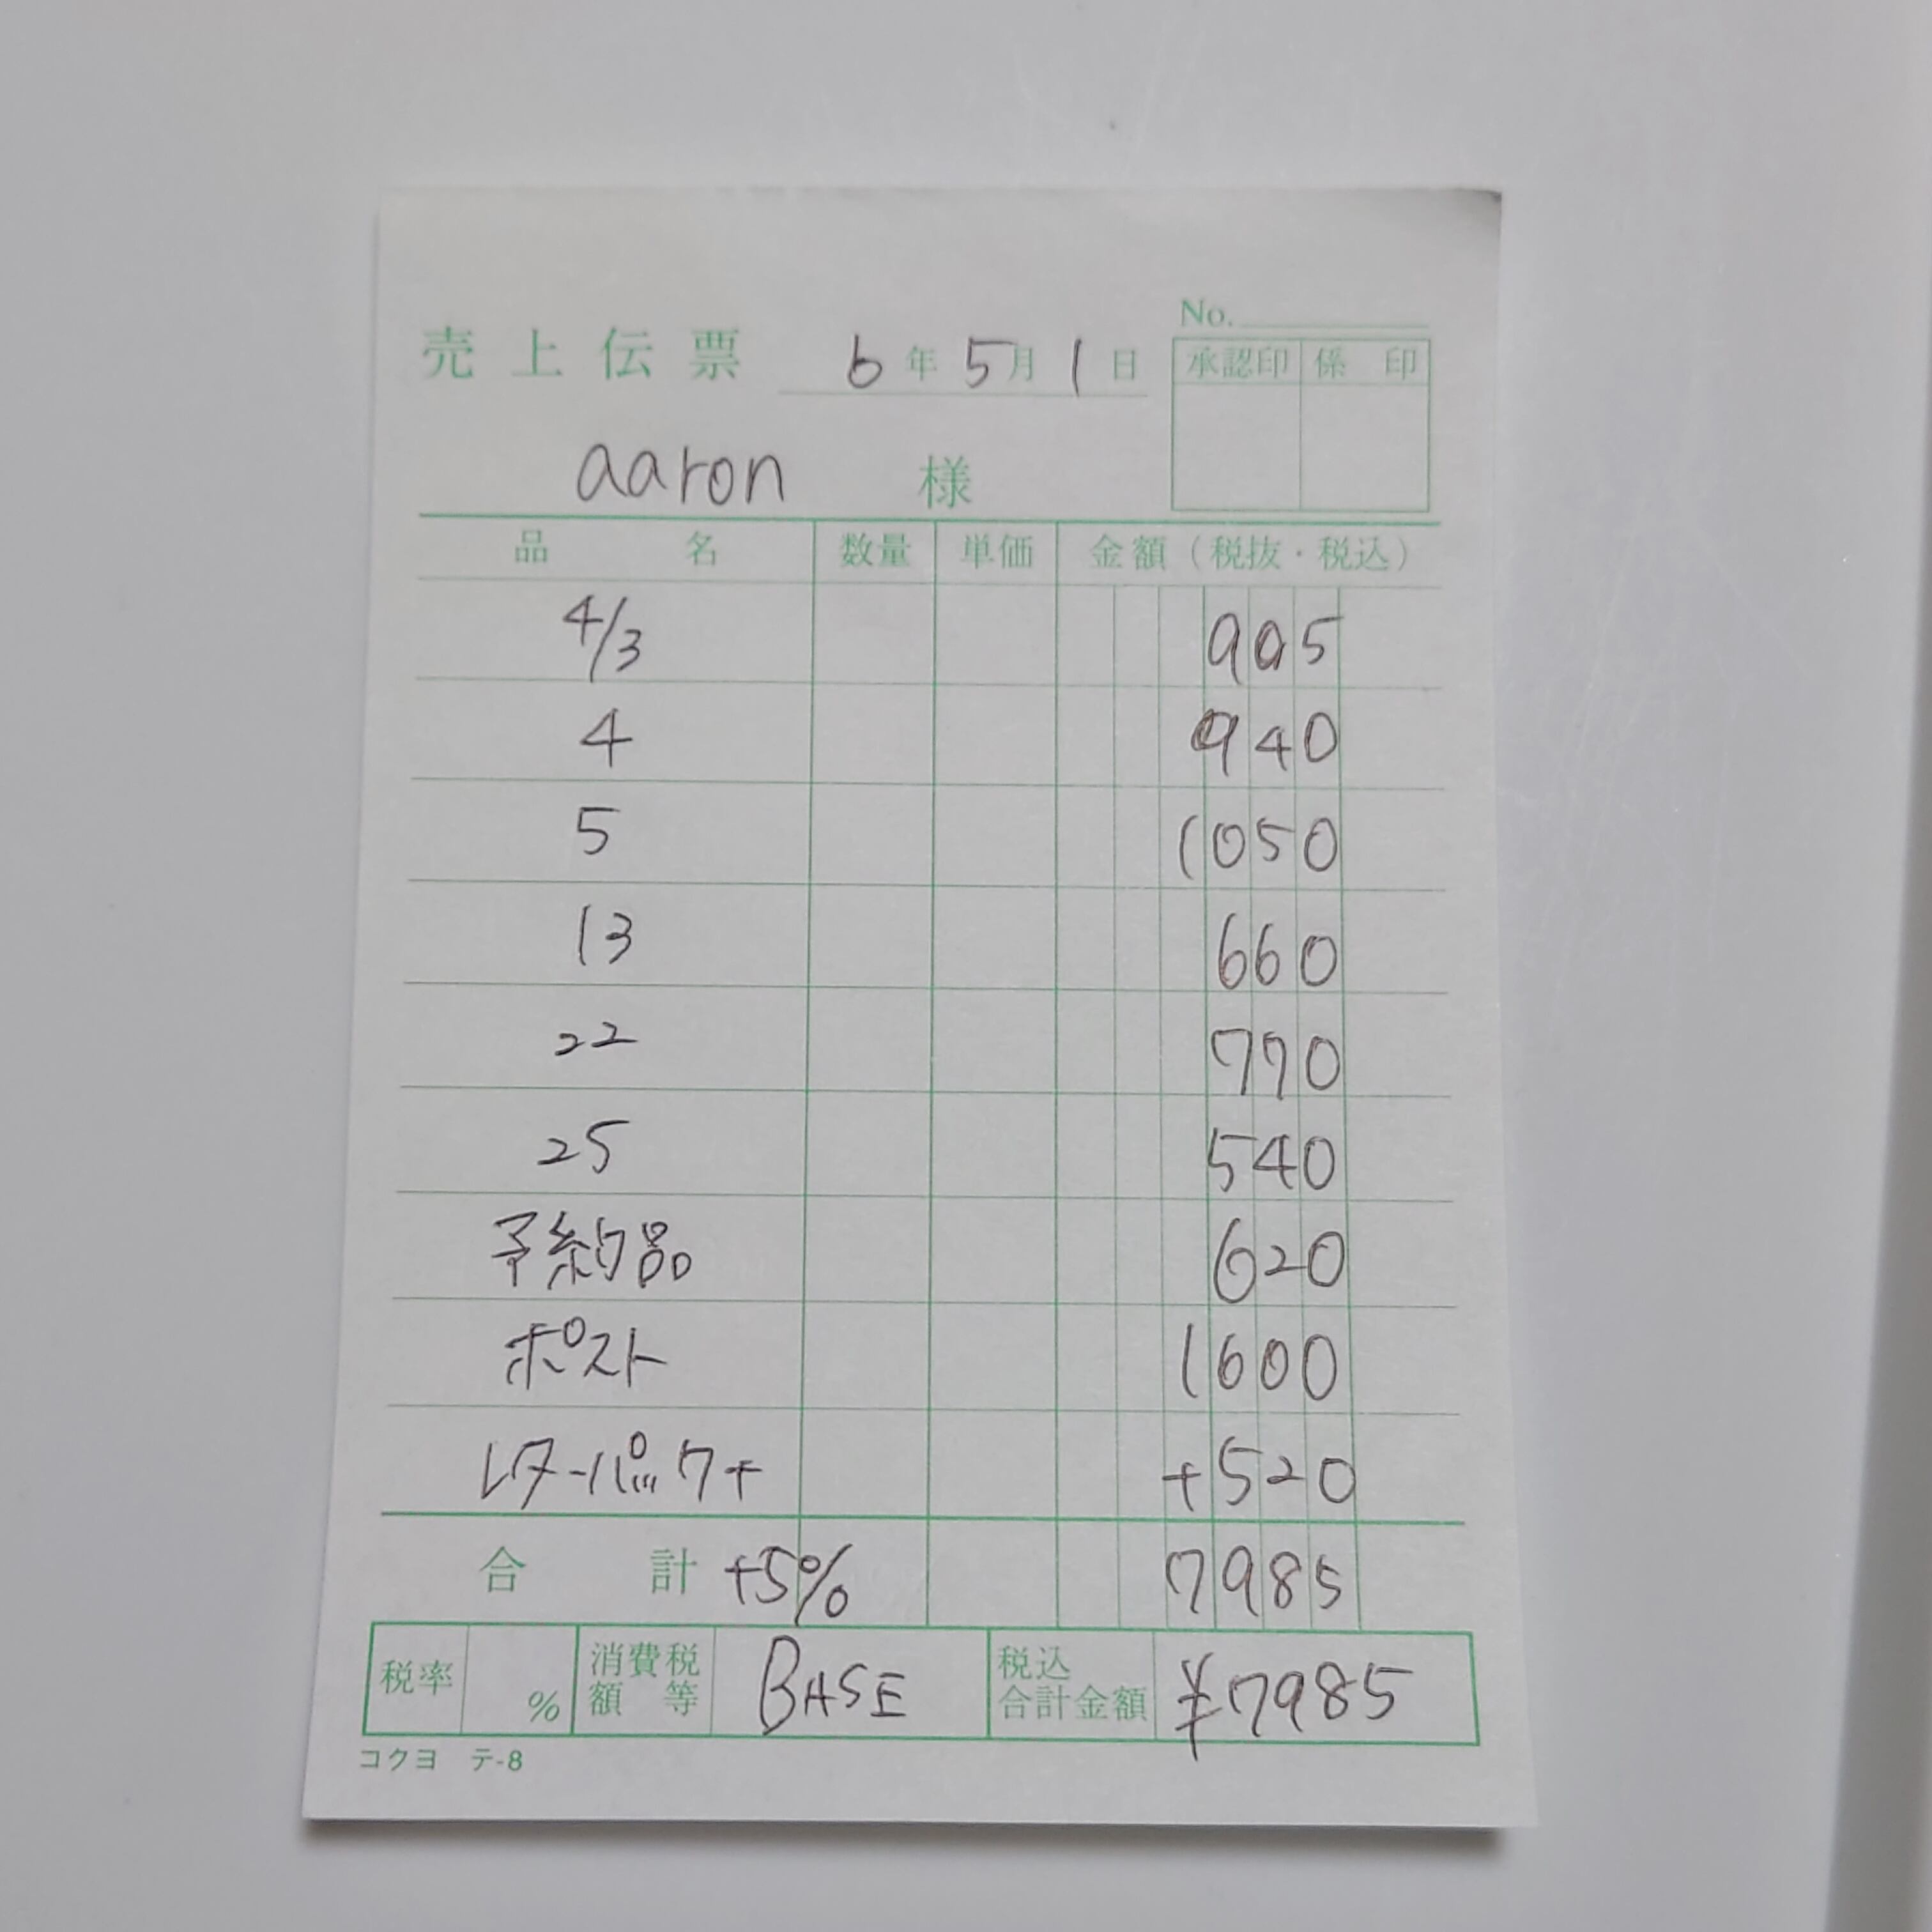 No.
売上伝票 6年5月1日
承認印 係印
aaron 様
品名 数量 単価 金額（税抜・税込）
4/3 905
4 940
5 1050
13 660
22 770
25 540
予約品 620
ポスト 1600
レターパック+ +520
合計 +5% 7985
税率 % 消費税額等 BASE 税込合計金額 ¥7985
コクヨ テ-8